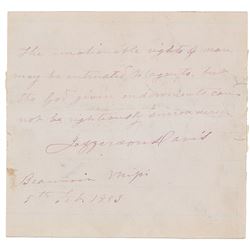 The inalienable rights of man
may be entrusted to agents, but
the God given endowments can
not be righteously surrendered
Jefferson Davis
Beauvoir Mpi
5th Feb. 1883